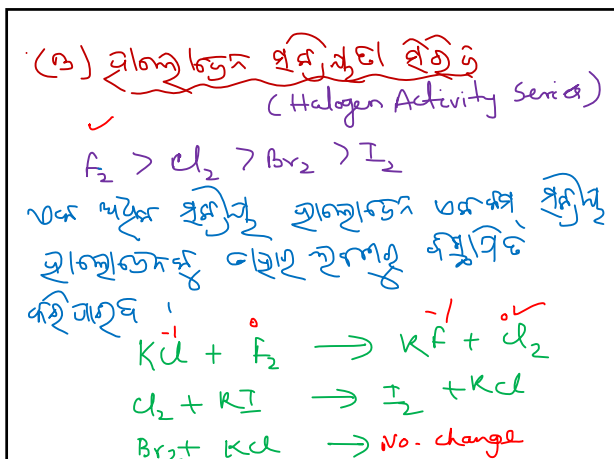 (୩) ହାଲୋଜେନ ସକ୍ରିୟତା ସିରିଜ
(Halogen Activity Series)
F₂ > Cl₂ > Br₂ > I₂
ଏକ ଅଧିକ ସକ୍ରିୟ ହାଲୋଜେନ ଏକ କମ୍ ସକ୍ରିୟ
ହାଲୋଜେନକୁ ତାହାର ଲବଣରୁ ବିସ୍ଥାପିତ
କରିପାରିବ ।
-1 0 -1 0
KCl + F₂ → KF + Cl₂
Cl₂ + KI → I₂ + KCl
Br₂ + KCl → No change